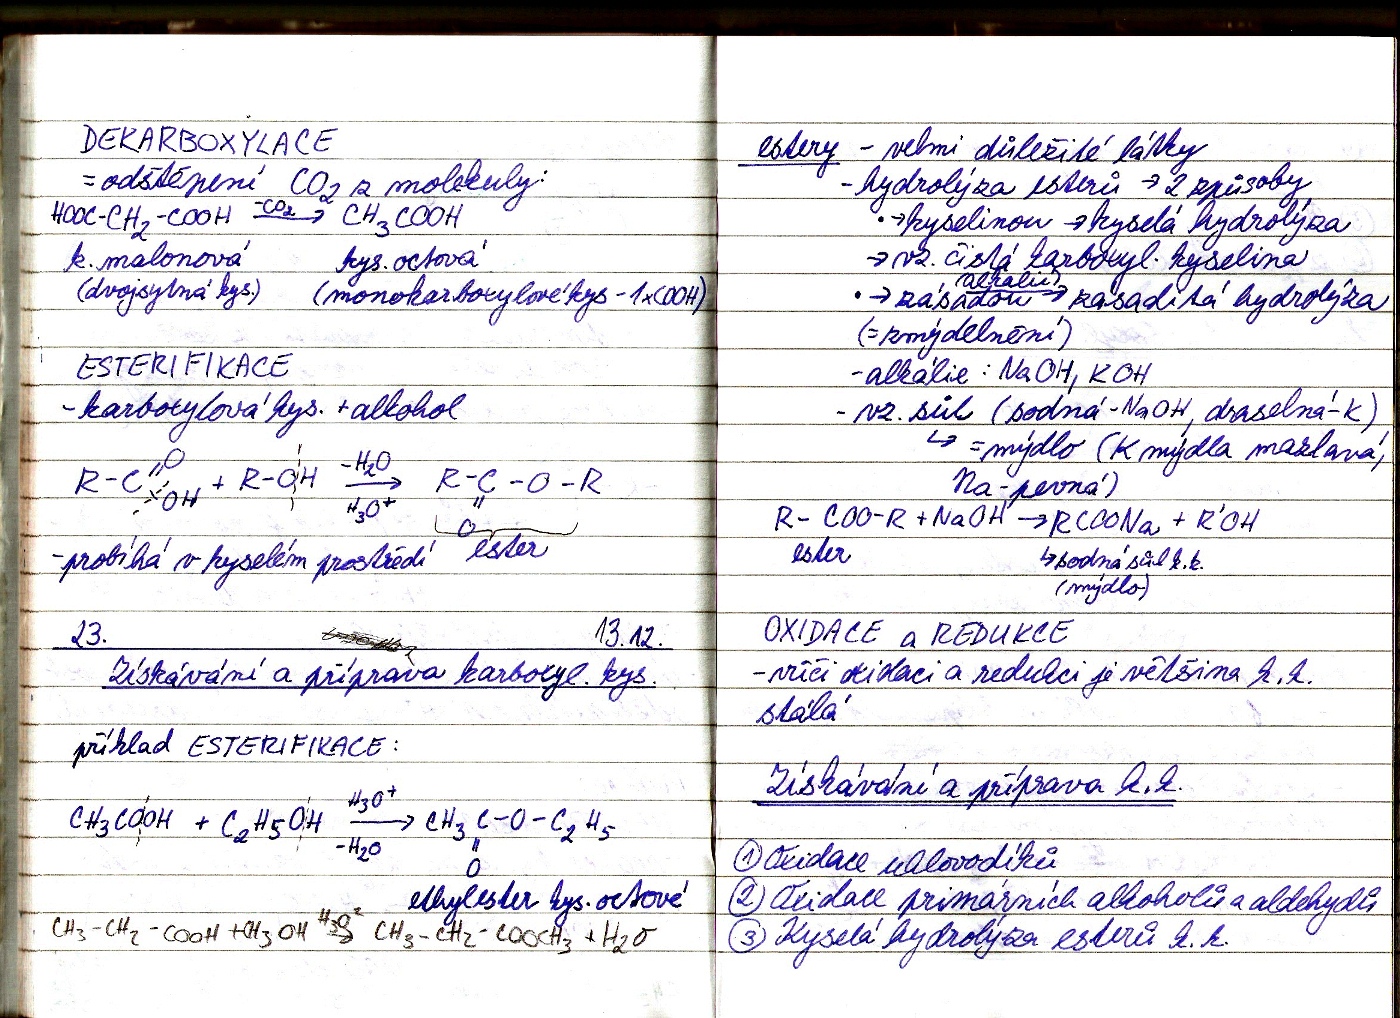 DEKARBOXYLACE
= odštěpení CO2 z molekuly:
HOOC-CH2-COOH -CO2→ CH3COOH
k. malonová kys. octová
(dvojsytná kys.) (monokarboxylové kys - 1xCOOH)
ESTERIFIKACE
- karboxylová kys. + alkohol
R-C=O OH + R-OH -H2O → H3O+ R-C-O-R
O
ester
- probíhá v kyselém prostředí
23. 13.12.
Získávání a příprava karboxyl. kys.
příklad ESTERIFIKACE:
CH3COOH + C2H5OH H3O+ → -H2O CH3C-O-C2H5
O
ethylester kys. octové
CH3-CH2-COOH + CH3OH → CH3-CH2-COOCH3 + H2O
estery - velmi důležité látky
- hydrolýza esterů → 2 způsoby
• → kyselinou → kyselá hydrolýza
→ vz. čistá karboxyl. kyselina
alkalic.
• → zásadou → zásaditá hydrolýza
(= zmýdelnění)
- alkálie: NaOH, KOH
- vz. sůl (sodná - NaOH, draselná - K)
↳ = mýdlo (K mýdla mazlavá,
Na - pevná)
R- COO-R + NaOH → RCOONa + R'OH
ester ↳ sodná sůl k.k.
(mýdlo)
OXIDACE a REDUKCE
- vůči oxidaci a redukci je většina k.k.
stálá
Získávání a příprava k.k.
① Oxidace uhlovodíků
② Oxidace primárních alkoholů a aldehydů
③ Kyselá hydrolýza esterů k.k.